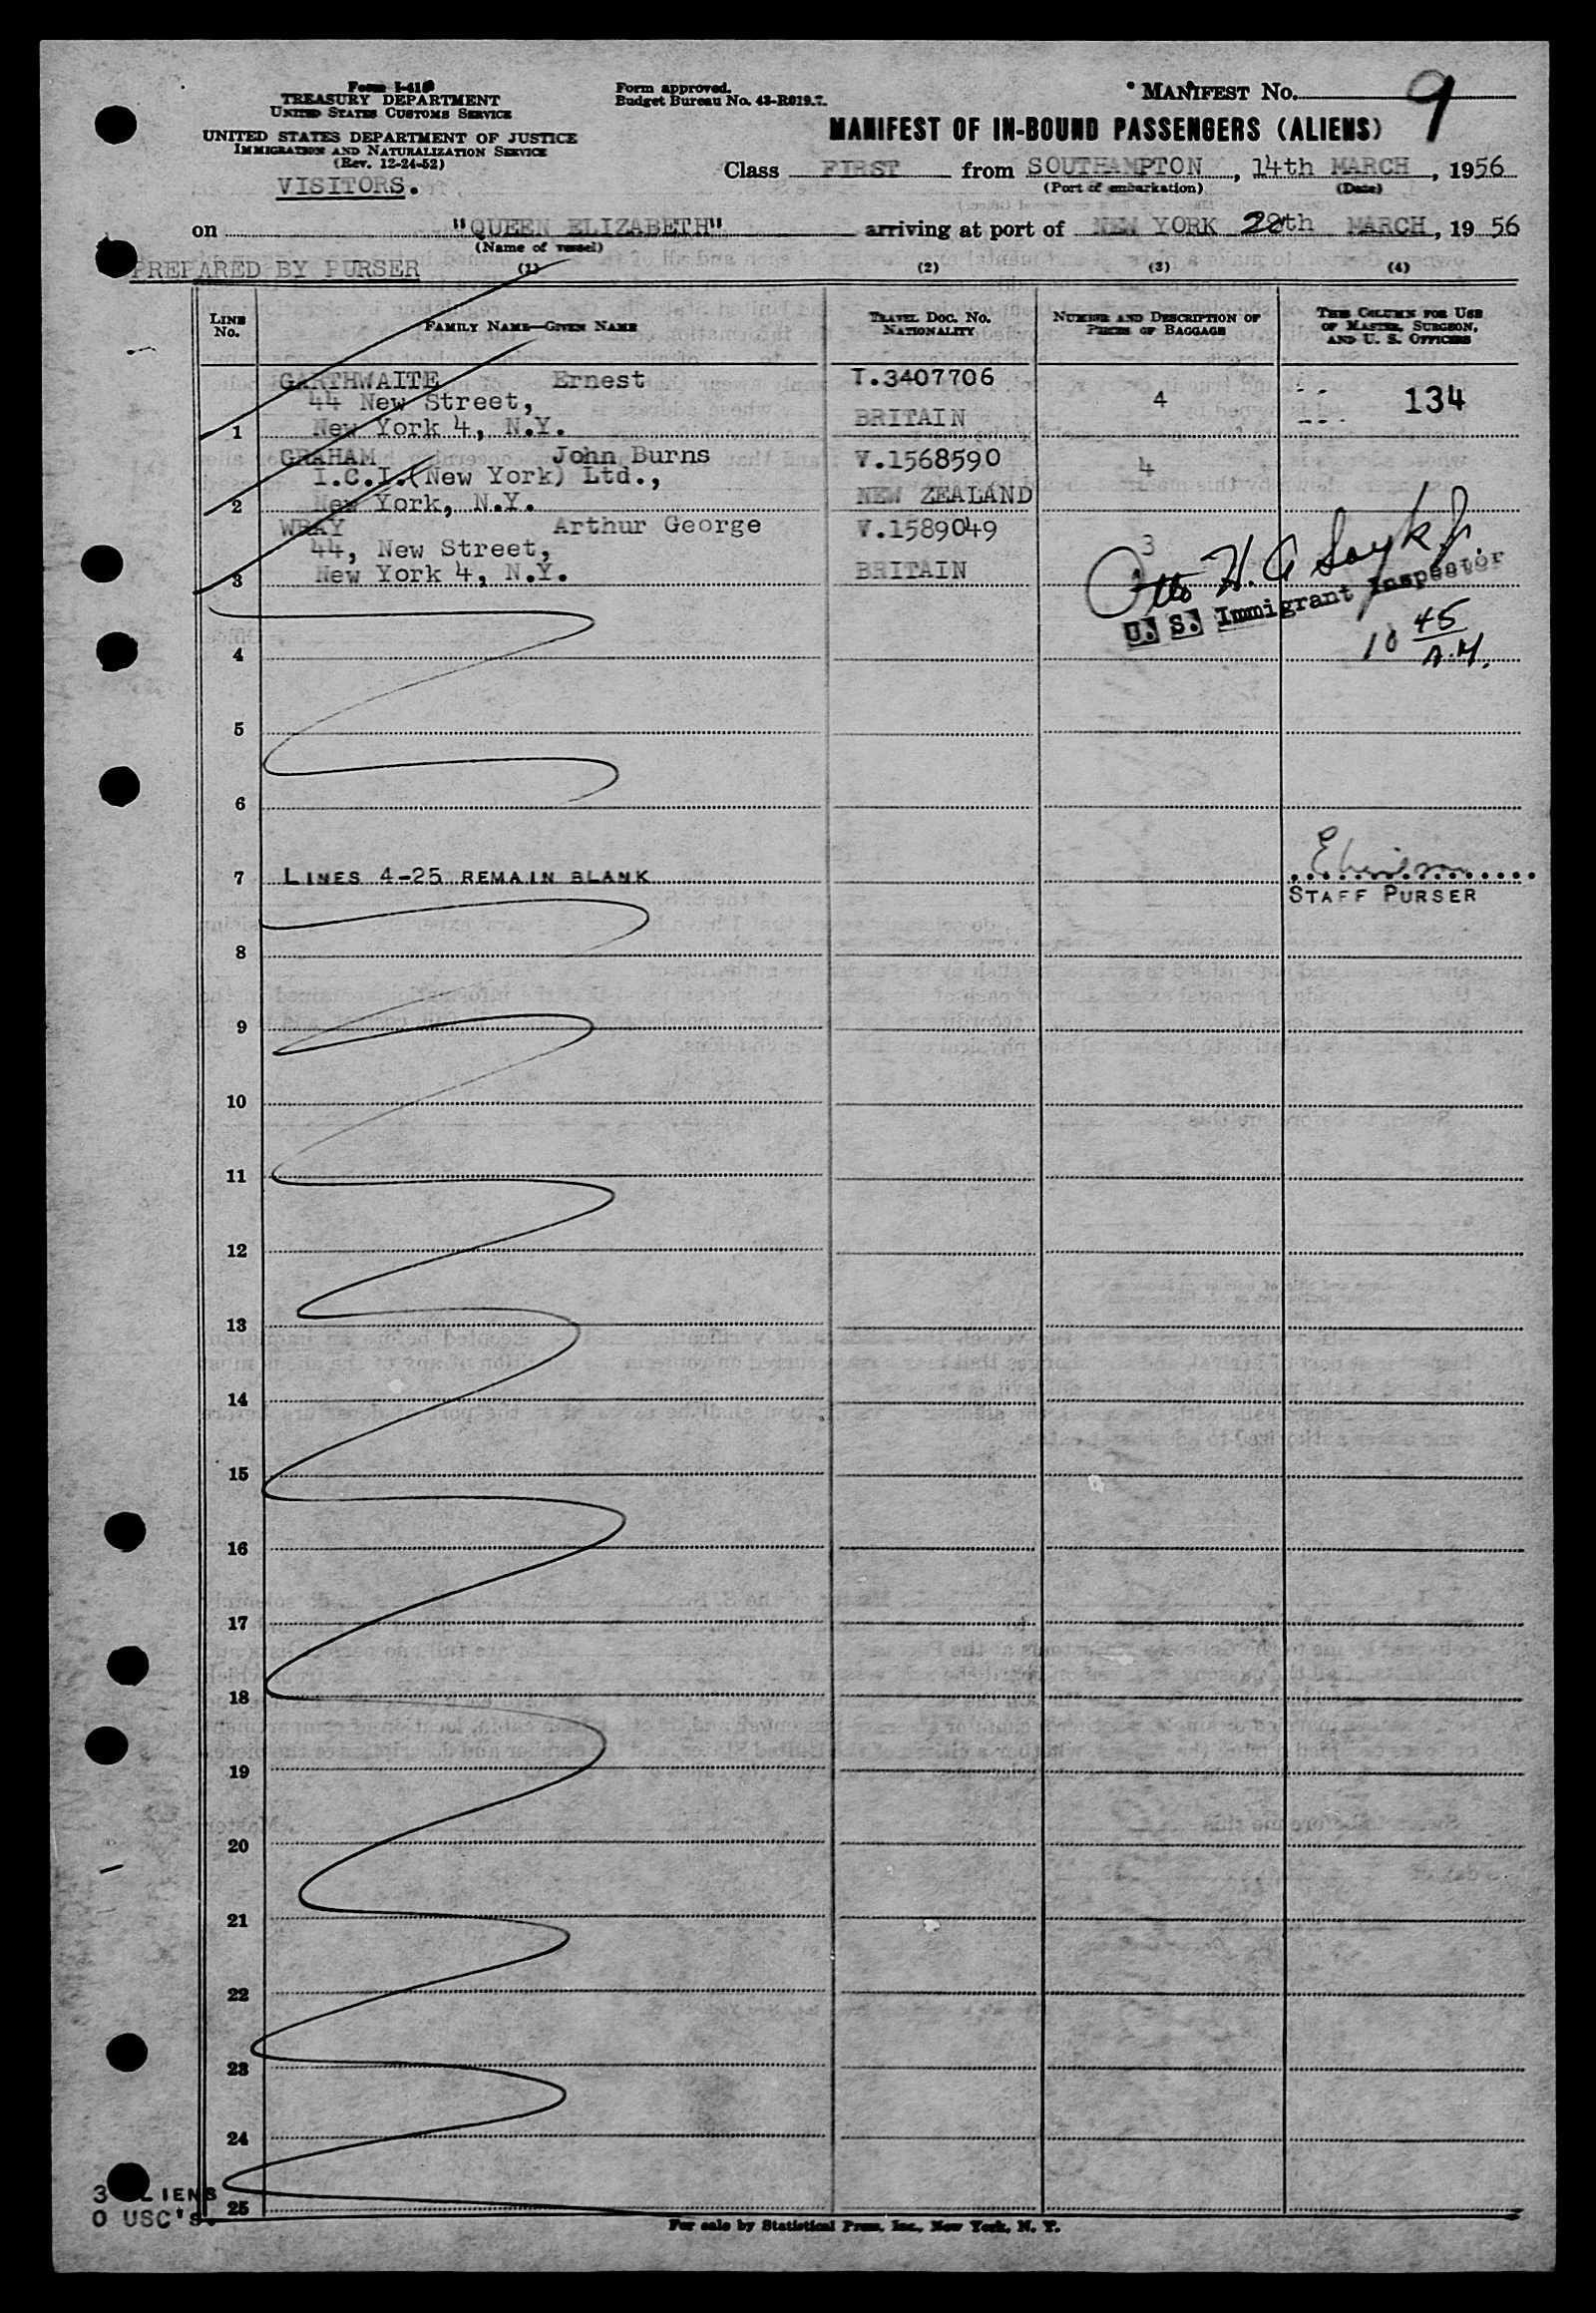 Form I-418
TREASURY DEPARTMENT
UNITED STATES CUSTOMS SERVICE
UNITED STATES DEPARTMENT OF JUSTICE
IMMIGRATION AND NATURALIZATION SERVICE
(Rev. 12-24-52)
VISITORS.
Form approved.
Budget Bureau No. 43-R019.7.
MANIFEST NO. 9
MANIFEST OF IN-BOUND PASSENGERS (ALIENS)
Class FIRST from SOUTHAMPTON, 14th MARCH, 1956
(Port of embarkation) (Date)
on "QUEEN ELIZABETH" arriving at port of NEW YORK 20th MARCH, 19 56
(Name of vessel)
PREPARED BY PURSER (1) (2) (3) (4)
LINE No. FAMILY NAME—GIVEN NAME TRAVEL DOC. NO. NATIONALITY NUMBER AND DESCRIPTION OF PIECES OF BAGGAGE THIS COLUMN FOR USE OF MASTER, SURGEON, AND U. S. OFFICERS
GARTHWAITE Ernest I.3407706
44 New Street, 4 134
1 New York 4, N.Y. BRITAIN
GRAHAM John Burns V.1568590
I.C.I.(New York) Ltd., 4
2 New York, N.Y. NEW ZEALAND
WRAY Arthur George V.1589049
44, New Street, 3
3 New York 4, N.Y. BRITAIN
Otto H.
U. S. Immigrant Inspector
10 45 A.M.
4
5
6
7 LINES 4-25 REMAIN BLANK
STAFF PURSER
8
9
10
11
12
13
14
15
16
17
18
19
20
21
22
23
24
3 ALIENS
25
0 USC'S.
For sale by Statistical Press, Inc., New York, N. Y.